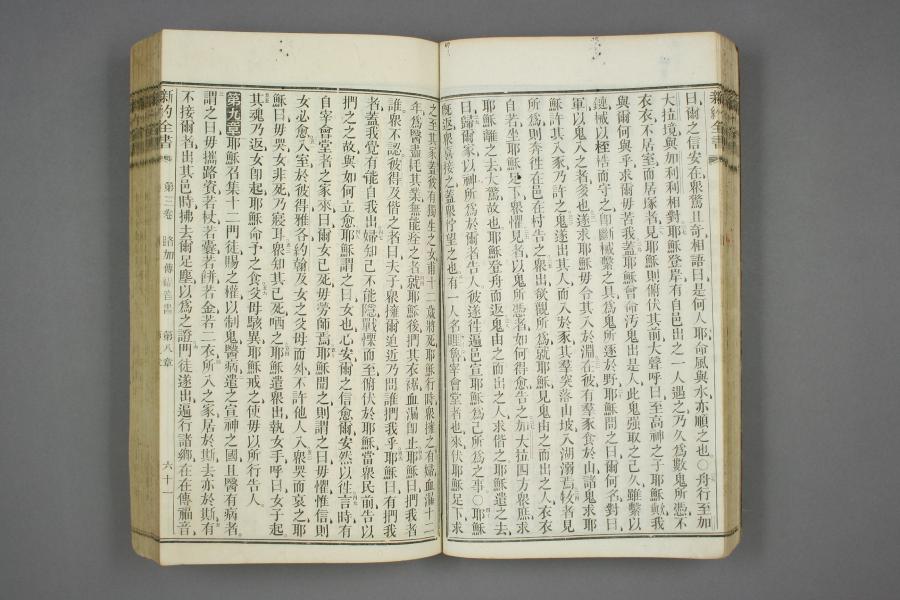 新約全書
曰爾之信安在衆驚且奇相語曰是何人耶命風與水亦順之也〇舟行至加
大拉境與加利利相對耶穌登岸有自邑出之一人遇之乃久爲數鬼所憑不
衣衣不居室而居塚者見耶穌則俯伏其前大聲呼曰至高神之子耶穌歟我
與爾何與乎求爾毋苦我蓋耶穌曾命汚鬼出是人此鬼强取之已久雖繫以
鏈械以桎梏而守之仍斷械繫之具爲鬼所逐於野耶穌問之曰爾何名對曰
軍以鬼入之者多也遂求耶穌毋令其入於淵在彼有羣豕食於山諸鬼求耶
穌許其入豕乃許之鬼遂出其人而入於豕其羣突落山坡入湖溺焉牧者見
所爲則奔往在邑在村告之衆出欲觀所爲就耶穌見鬼由之而出之人衣衣
自若坐耶穌足下衆懼見者以鬼所憑者如何得愈告之加大拉四方衆庶求
耶穌離之去大驚故也耶穌登舟而返鬼由之而出之人求偕之耶穌遣之去
曰歸爾家以神所爲於爾者告人彼遂往遍邑宣耶穌爲己所爲之事〇耶穌
旣返衆喜接之蓋衆佇望之也有一人名睚魯宰會堂者也來伏耶穌足下求
之至其家蓋彼有獨生之女甫十二歲將死耶穌行時衆擁之有婦血漏十二
年爲醫盡耗其業無能痊之者就耶穌後捫其衣䍁血漏卽止耶穌曰捫我者
誰衆不認彼得及偕之者曰夫子衆擁爾迫近乃問誰捫我乎耶穌曰有捫我
者蓋我覺有能自我出婦知己不能隱戰慄而至俯伏於耶穌當衆民前告以
捫之之故與如何立愈耶穌謂之曰女也心安爾之信愈爾安然以往言時有
自宰會堂者之家來曰爾女已死毋勞師焉耶穌聞之則謂之曰毋懼惟信則
女必愈入室於彼得雅各約翰及女之父母而外不許他人入衆哭而哀之耶
穌曰毋哭女非死乃寢耳衆知其已死哂之耶穌遣衆出執女手呼曰女子起
其魂乃返女卽起耶穌命予之食父母駭異耶穌戒之使毋以所行告人
第九章耶穌召集十二門徒賜之權以制鬼醫病遣之宣神之國且醫有病者
謂之曰毋攜路資若杖若囊若餅若金若二衣所入之家居於斯去亦於斯有
不接爾者出其邑時拂去爾足塵以爲之證門徒遂出遍行諸鄉在在傳福音
新約全書 第三卷 路加傳福音書 第八章 六十一